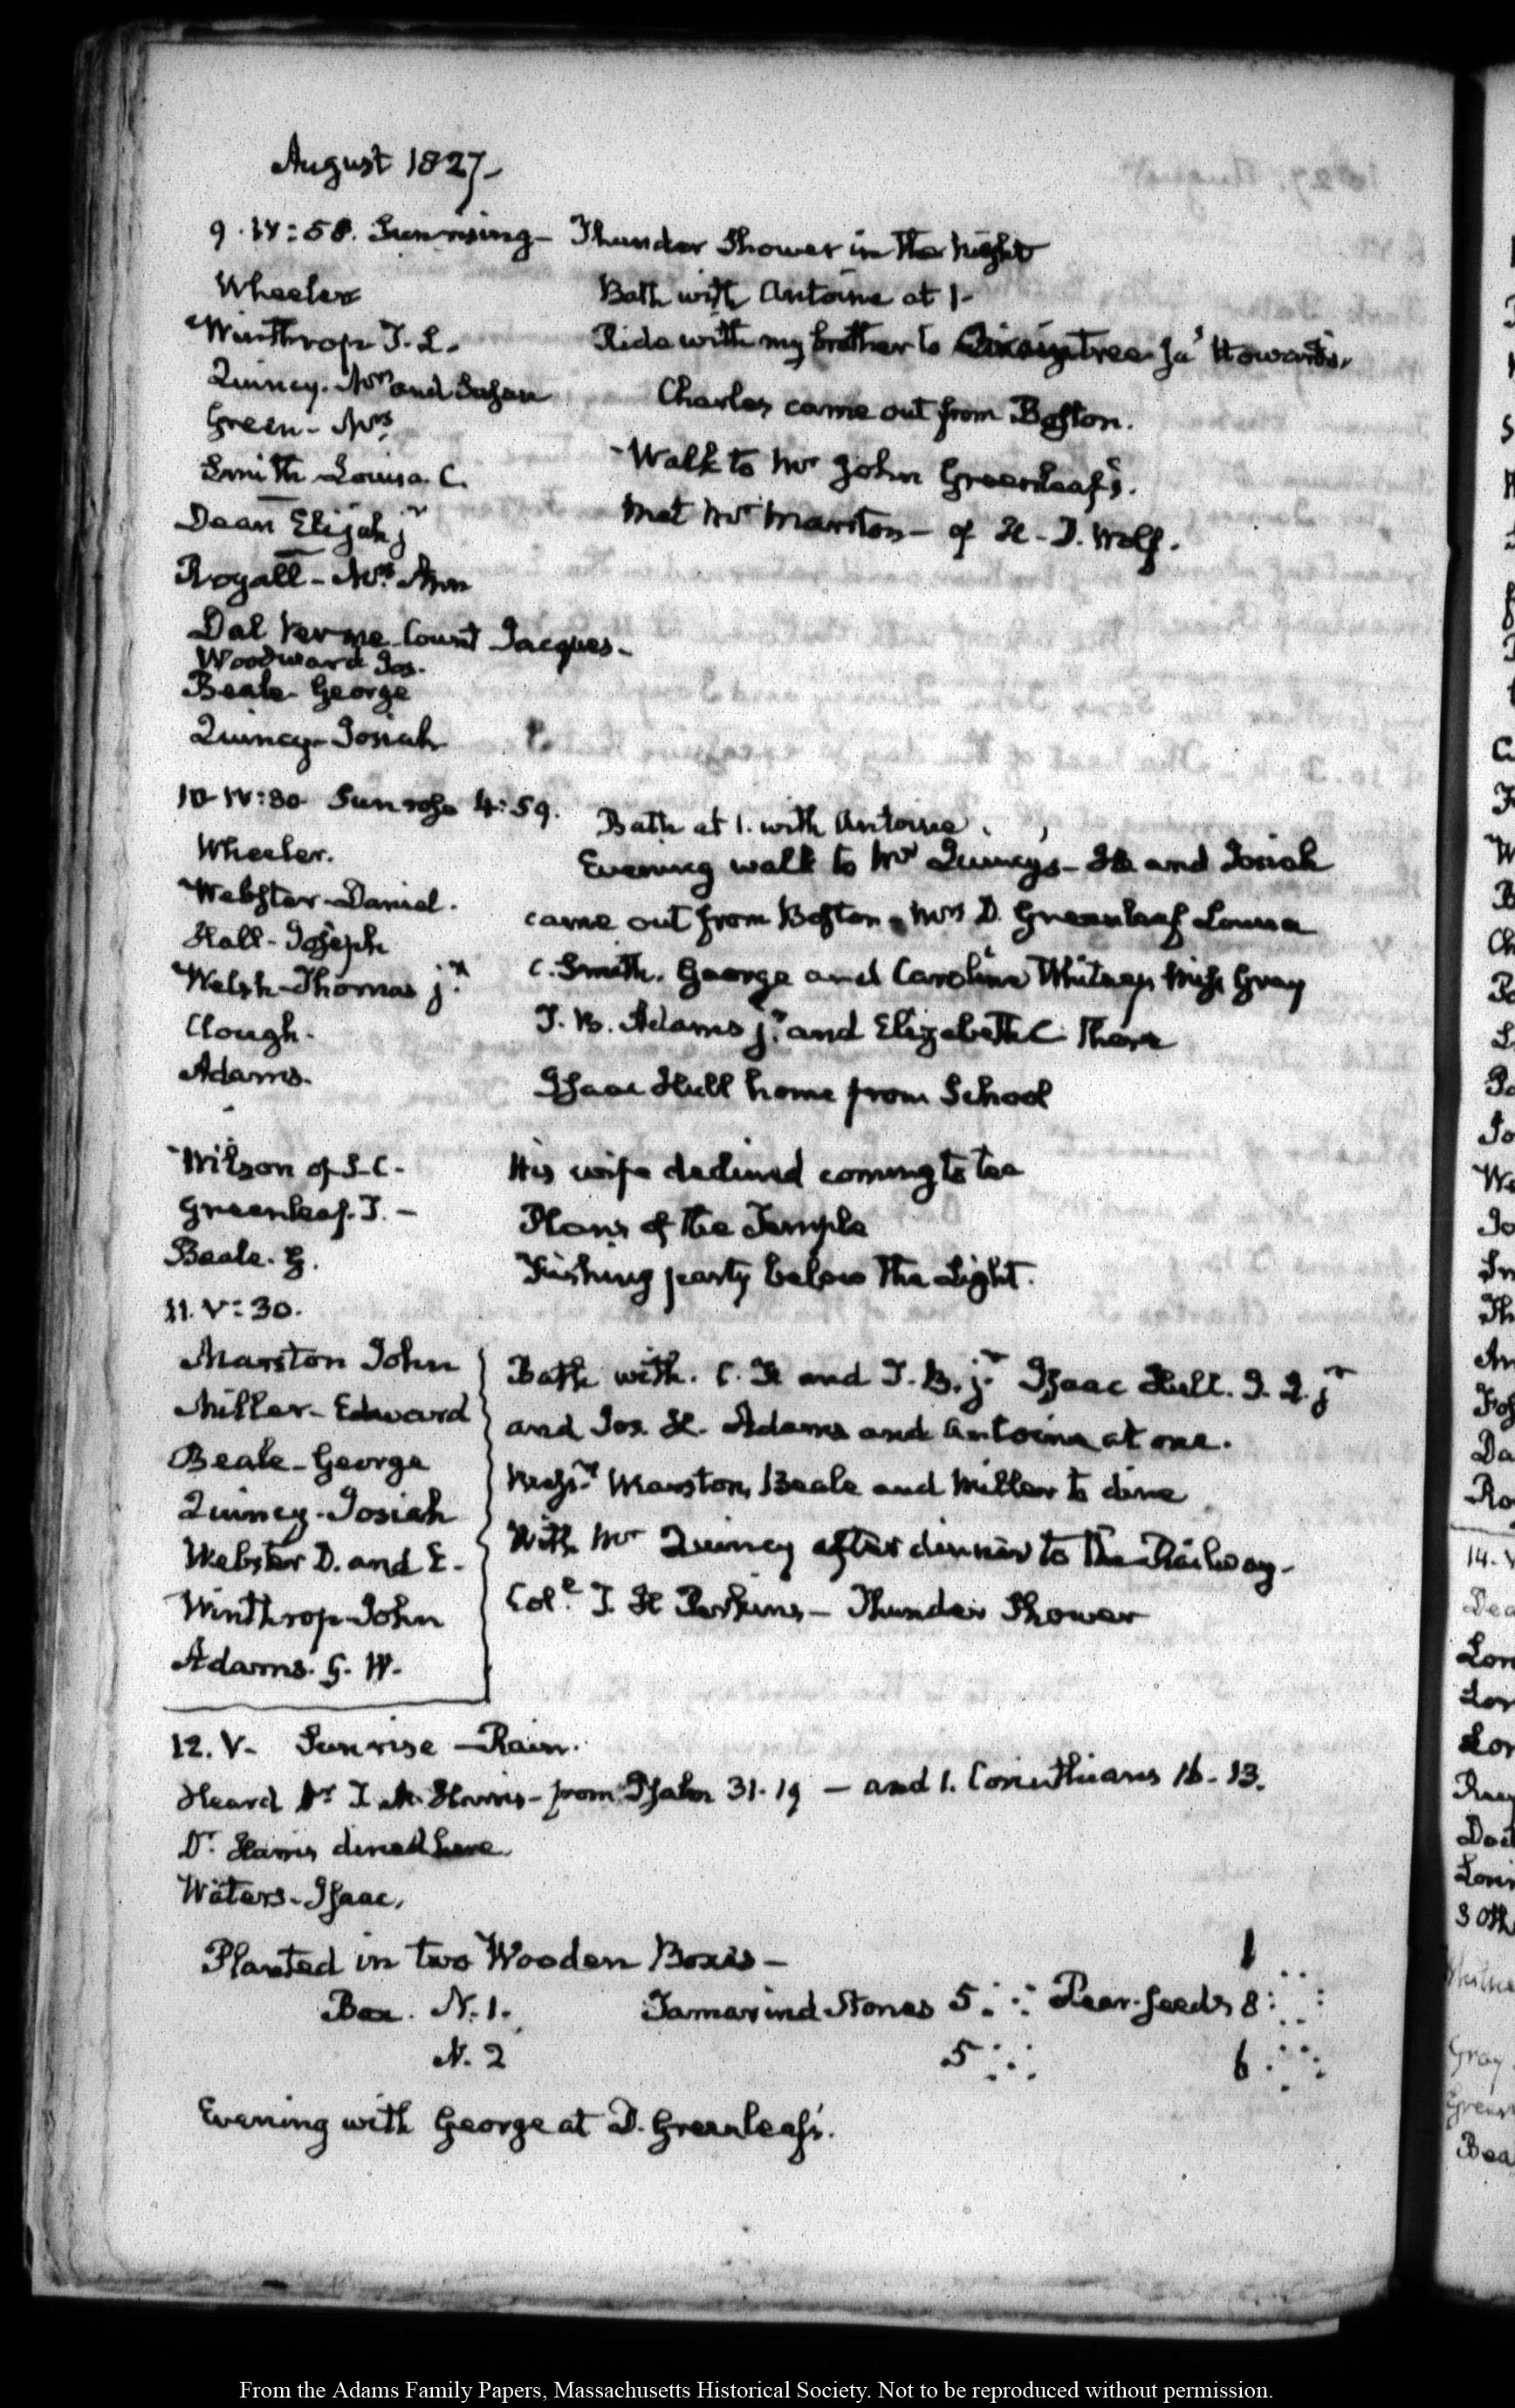 August 1827-
9. IV:58. Sun rising- Thunder Shower in the Night
Wheeler
Bath with Antoine at 1-
Winthrop T. L.
Ride with my brother to Braintree Ja's Howard's.
Quincy. Mrs and Susan
Charles came out from Boston.
Green- Mrs
Walk to Mr John Greenleaf's.
Smith Louisa. C.
Met Mr Marston- of H. D. Wolf.
Dean Elijah jr
Royall- Mrs Ann
Dal Verme Count Jacques-
Woodward Jos.
Beale- George
Quincy- Josiah
10. IV:30 Sun rose 4:59.
Bath at 1. with Antoine.
Wheeler.
Evening walk to Mr Quincy's- He and Josiah
Webster- Daniel.
came out from Boston. Mrs D. Greenleaf Louisa
Hall- Joseph
C. Smith. George and Caroline Whitney Miss Gray
Welsh- Thomas jr.
T. B. Adams jr. and Elizabeth C. There
Clough-
Adams-
Isaac Hull home from School
Wilson of S-C-
His wife declined coming to tea
Greenleaf. T. -
Plans of the Temple
Beale. G.
Fishing party below the Light.
11. V:30.
Marston John
Bath with. C. F. and T. B. jr. Isaac Hull. J. Q. jr
Miller- Edward
and Jos. H. Adams and Antoine at one.
Beale- George
Messrs. Marston, Beale and Miller to dine
Quincy- Josiah
With Mr Quincy after dinner to the Railway-
Webster D. and E-
Winthrop- John
Coll. T. H. Perkins- Thunder Shower
Adams. G. W-
12. V- Sunrise -Rain.
Heard Dr T. M. Harris- from Psalm 31. 19 - and 1. Corinthians 16. 13.
Dr. Harris dined here.
Waters- Isaac.
Planted in two Wooden Boxes-
1
Box. N. 1. Tamarind Stones 5 Pear-seeds 8
N. 2 5 6
Evening with George at D. Greenleaf's.
From the Adams Family Papers, Massachusetts Historical Society. Not to be reproduced without permission.